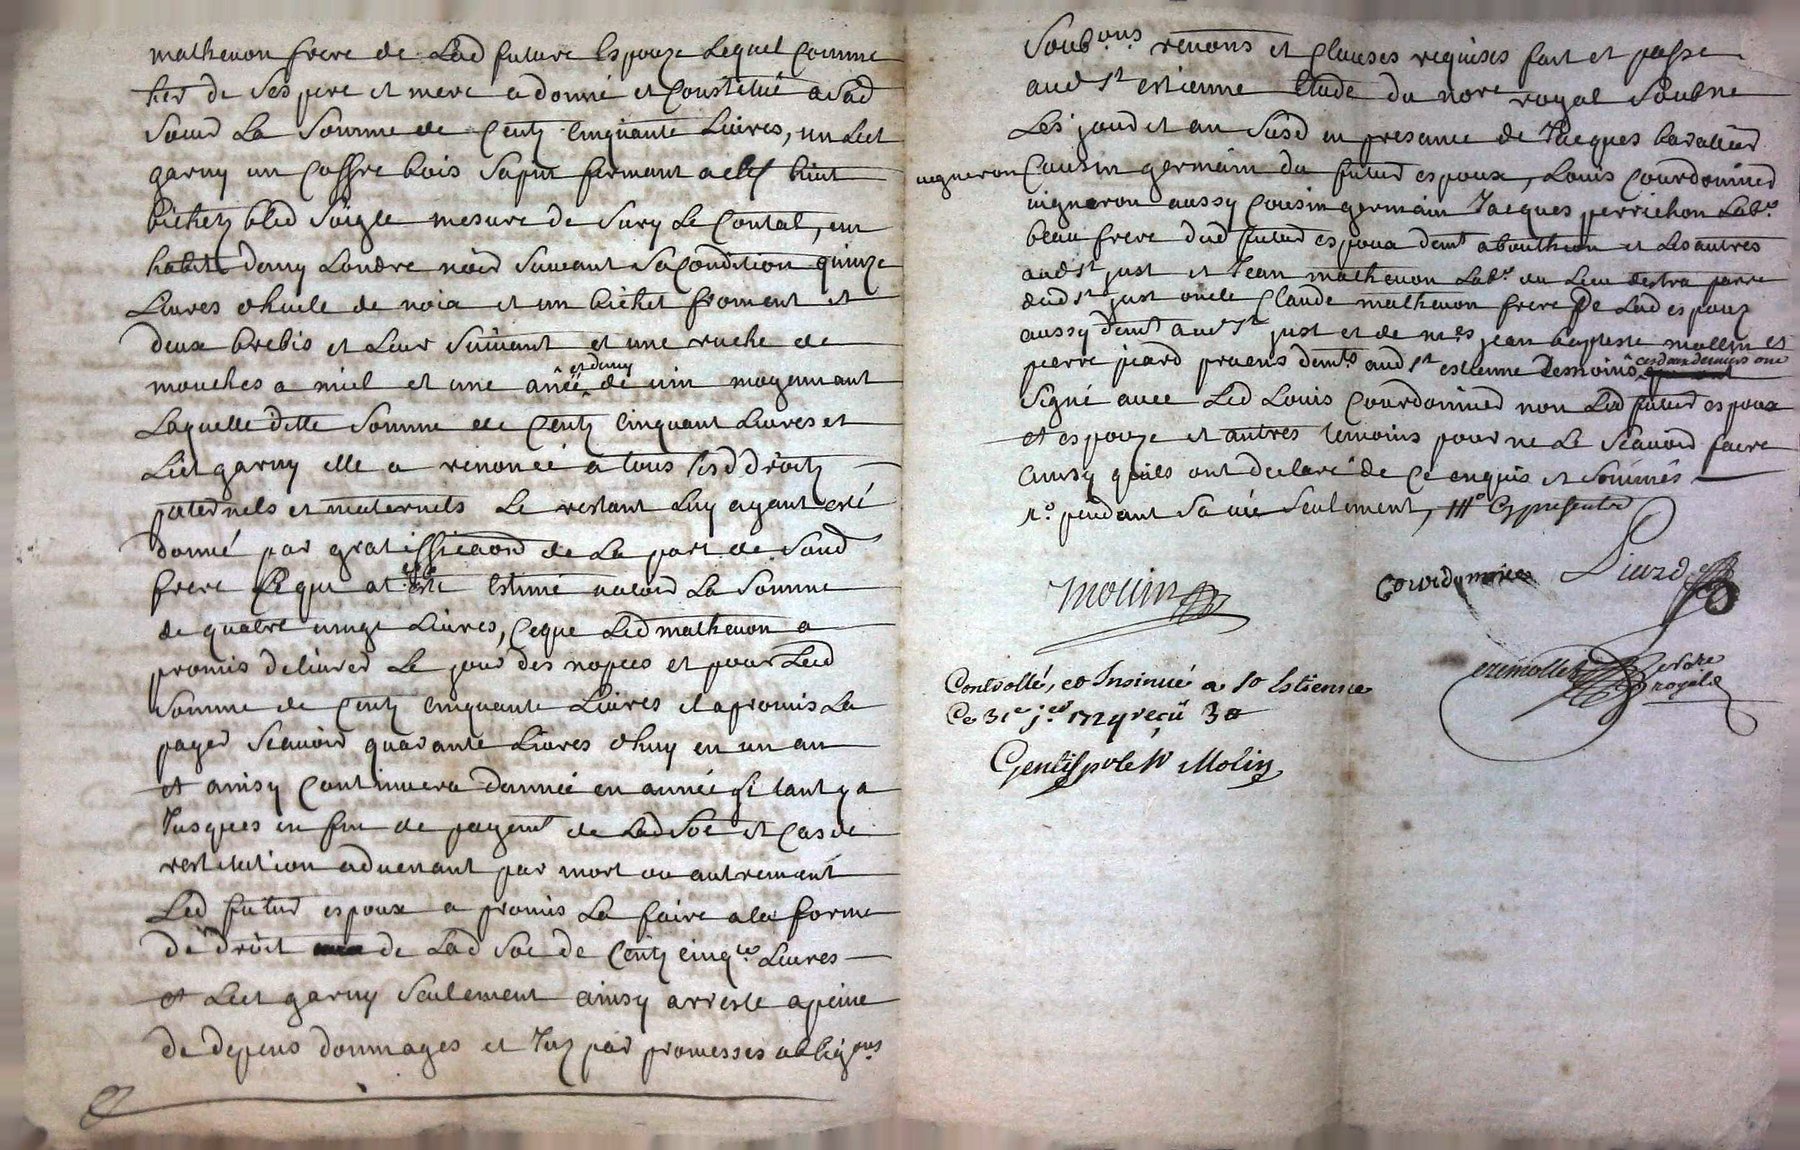 mathevon frere de Lad future Espouze Lequel comme
her de ses pere et mere a donné et Constitué a Sad
Soeur La Somme de Cents Cinquante Livres, un Lict
garny un Coffre bois Sapin fermant a clef huit
bichetz bled Soigle mesure de Sury Le Contal, un
habit demy Londre noir Suivant Sa Condition quinze
Livres dhuile de noix et un bichet froment et
deux brebis et Leur Suivant et une ruche de
mouches a miel et une anéé et demy de vin moyennant
Laquelle ditte Somme de Cents Cinquant Livres et
Lict garny elle a renoncé a tous Sesd droits
paternels et maternels Le restant Luy ayant esté
donné par gratiffica͠on de La part de Sond
frere Ce qui at esté Estimé valoir La Somme
de quatre vingt Livres, Ceque Led mathevon a
promis delivrer Le jour des nopces et pour Lad
Somme de Cents Cinquante Livres il a promis La
payer Scavoir quarante Livres dhuy en un an
et ainsy Continuera dannée en année Si tant y a
Jusques en fin de payemt de Lad Soe et Cas de
restitution advenant par mort ou autrement
Led futur espoux a promis La faire a la forme
de droit de Lad Soe de Cents Cinqte Livres
et Lict garny Seulement ainsy arresté a peine
de depens dommages et Jnz par promesses obligons
Soubons renons et Clauses requises fait et passé
aud St estienne Etude du nore royal Soubne
Les jour et an Susd en presance de Jacques
vigneron Cousin germain du futur espoux, Louis Courdonnier
vigneron aussy Cousin germain Jacques perrichon Labr
beau frere dud futur espoux demt a boutheon et Les autres
aud St just et Jean mathevon Labr du Lieu destra parre
dud St just oncle Claude mathevon frere De Lad espouz
aussy demt aud St just et de mes jean baptiste mollin et
pierre picard pratiens demts aud St estienne tesmoins, ces deux derniers ont
Signé avec Led Louis Courdonnier non Led futur espoux
et espouze et autres temoins pour ne Le Scavoir faire
ainsy quils ont declaré de Ce enquis et Sommés
pendant Sa vie Seulement,
mollin
Courdonnier
Picard
notaire
royal
Controllé, et Insinué a St Estienne
Ce 31e jer 1724 reçu
Gentil pr le Sr Molin